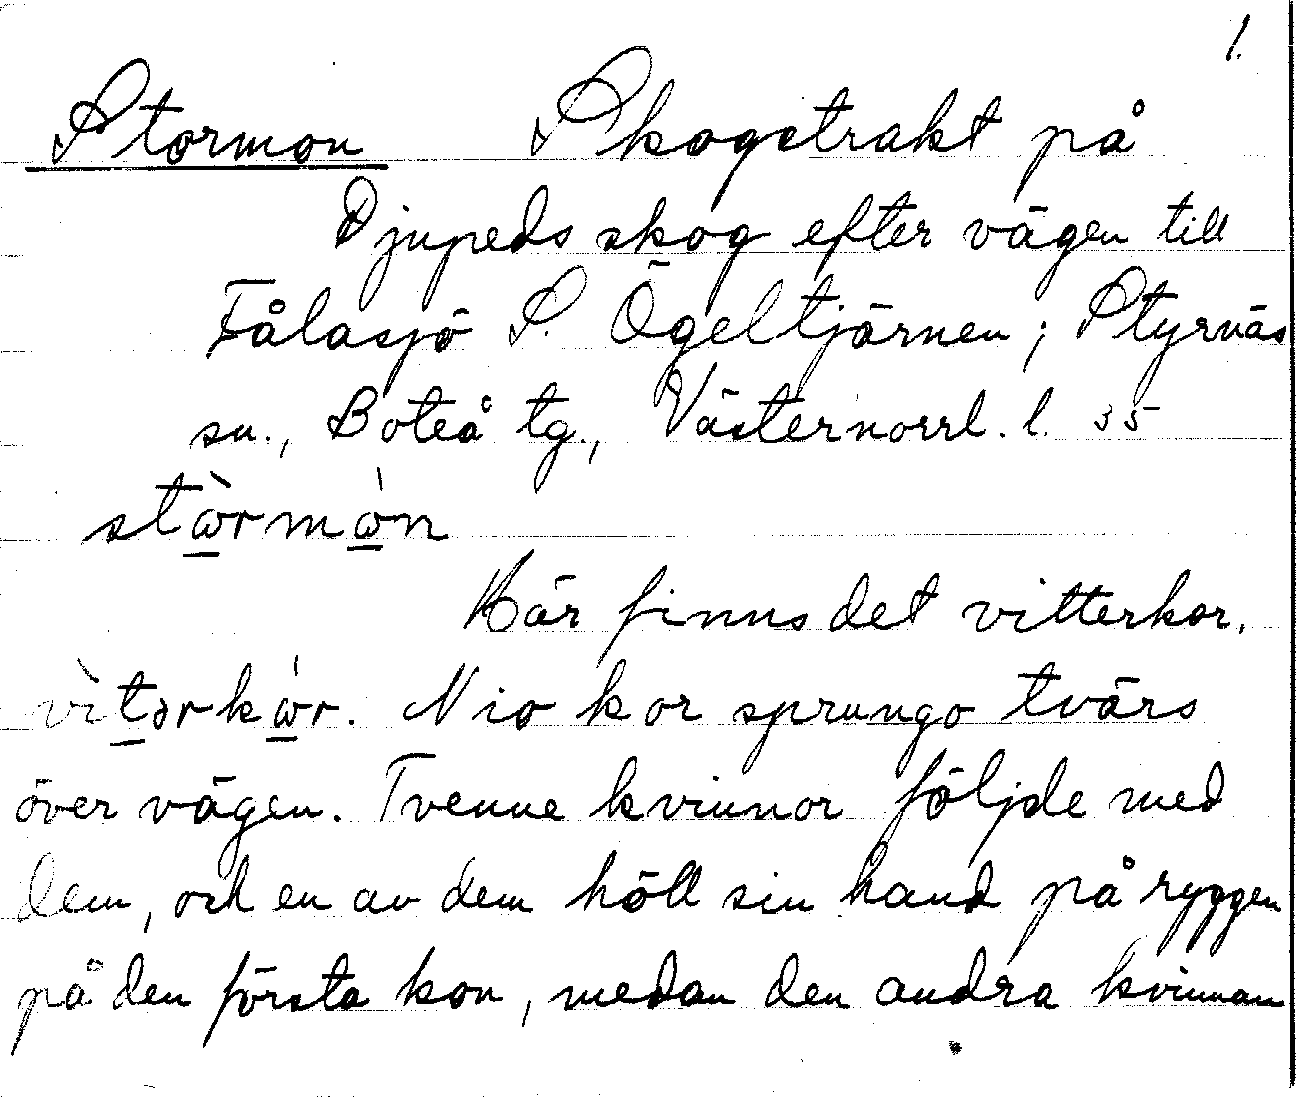 1.
Stormon Skogstrakt på
Djupeds skog efter vägen till
Fålasjö S. Ögeltjärnen; Styrnäs
sn., Boteå tg., Västernorrl. l. 35
stòrmón
Här finns det vitterkor,
vìtərkór. Nio kor sprungo tvärs
över vägen. Tvenne kvinnor följde med
dem, och en av dem höll sin hand på ryggen
på den första kon, medan den andra kvinnan